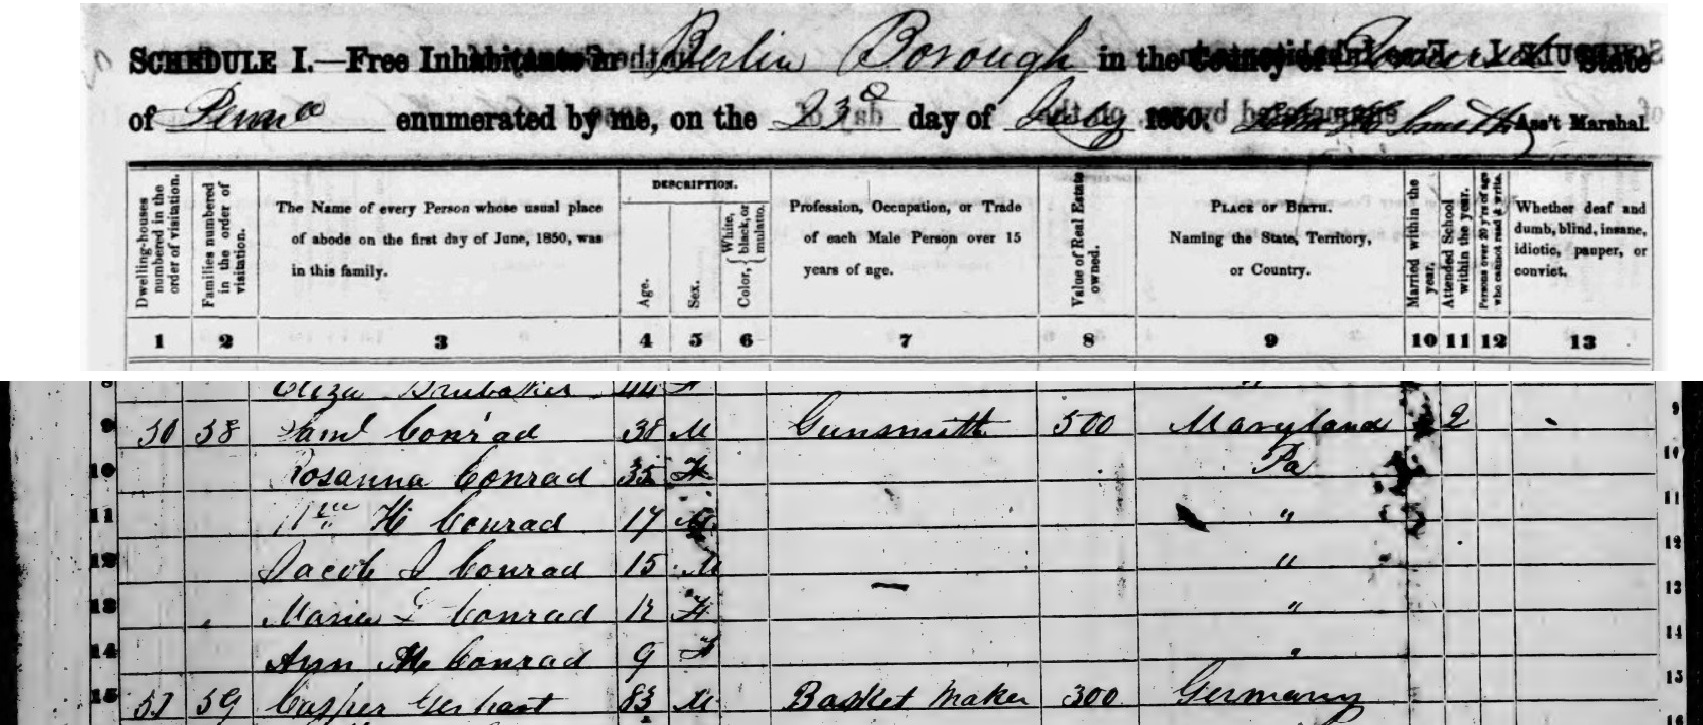 SCHEDULE I.—Free Inhabitants in Berlin Borough in the County of Somerset State
of Penna enumerated by me, on the 23d day of July 1850. John H Smith Ass't Marshal.
Dwelling-houses numbered in the order of visitation.
Families numbered in the order of visitation.
The Name of every Person whose usual place of abode on the first day of June, 1850, was in this family.
DESCRIPTION.
Age.
Sex.
Color, { White, black, or mulatto.
Profession, Occupation, or Trade of each Male Person over 15 years of age.
Value of Real Estate owned.
PLACE OF BIRTH. Naming the State, Territory, or Country.
Married within the year.
Attended School within the year.
Persons over 20 y'rs of age who cannot read & write.
Whether deaf and dumb, blind, insane, idiotic, pauper, or convict.
1 2 3 4 5 6 7 8 9 10 11 12 13
Eliza Brubaker 44 F "
9 50 58 Saml Conrad 38 M Gunsmith 500 Maryland 2 9
10 Rosanna Conrad 35 F Pa 10
11 H Conrad 17 M " 11
12 Jacob J Conrad 15 M " 12
13 Conrad 12 F " 13
14 Ann M Conrad 9 F " 14
15 51 59 Casper Gerhart 83 M Basket Maker 300 Germany 15